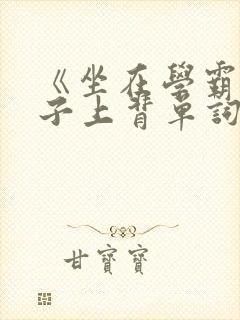 《坐在學霸
子上背單詞
甘寶寶